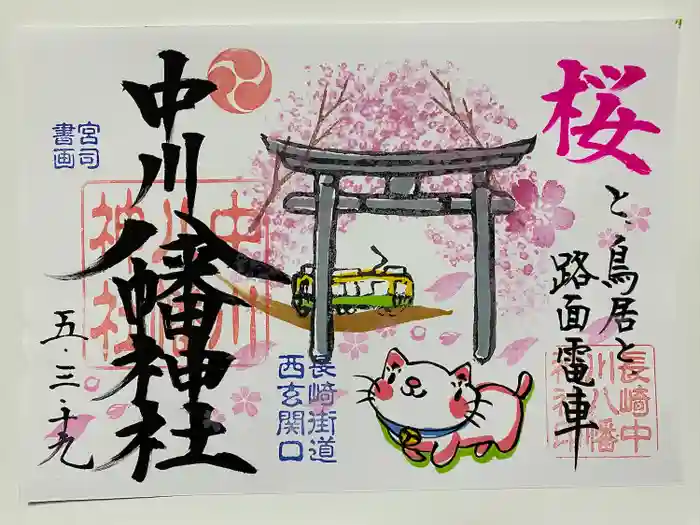 桜
と、鳥居と、
路面電車
長崎中
川八幡
神社印
長崎街道
西玄関口
中川八幡神社
中川
八幡
神社
宮司
書画
五・三・十九